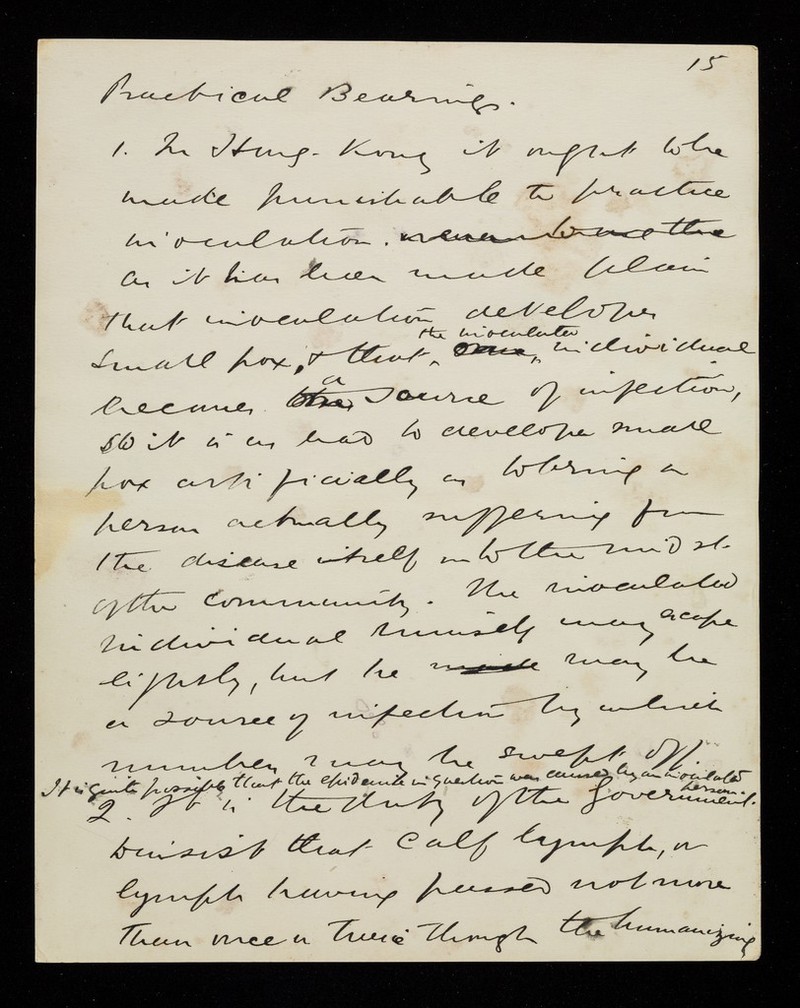 15
Practical Bearings.
1. In Hong-Kong it ought to be
made punishable to practice
inoculation.
as it has been made plain
that inoculation develops
the inoculated
small pox, & that individual
a
becomes the source of infection,
so it is as bad to develope small
pox artificially as to bring a
person actually suffering from
the disease itself into the midst
of the community. The inoculated
individual himself may escape
lightly, but he may be
a source of infection by which
numbers may be swept off.
It is quite possible that the epidemic in question was caused by an inoculated
person.
2. It is the duty of the Government
to insist that calf lymph, or
lymph having passed not more
than once or twice through the humanizing